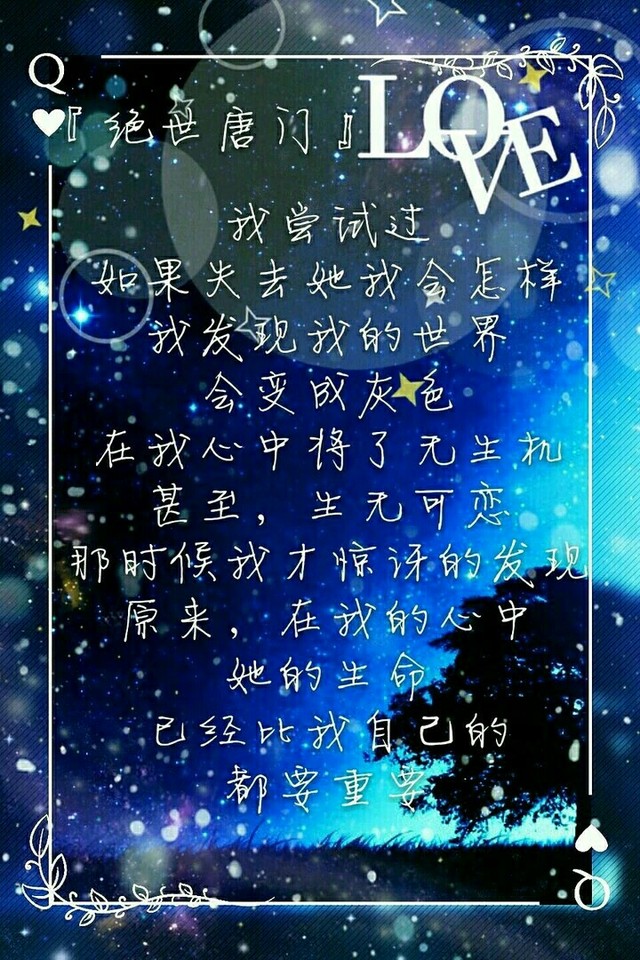 Q
『绝世唐门』
LOVE
我尝试过
如果失去她我会怎样
我发现我的世界
会变成灰色
在我心中将了无生机
甚至，生无可恋
那时候我才惊讶的发现
原来，在我的心中
她的生命
已经比我自己的
都要重要
Q